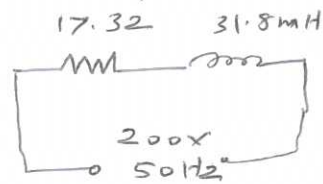 17.32 31.8mH
200x
50Hz